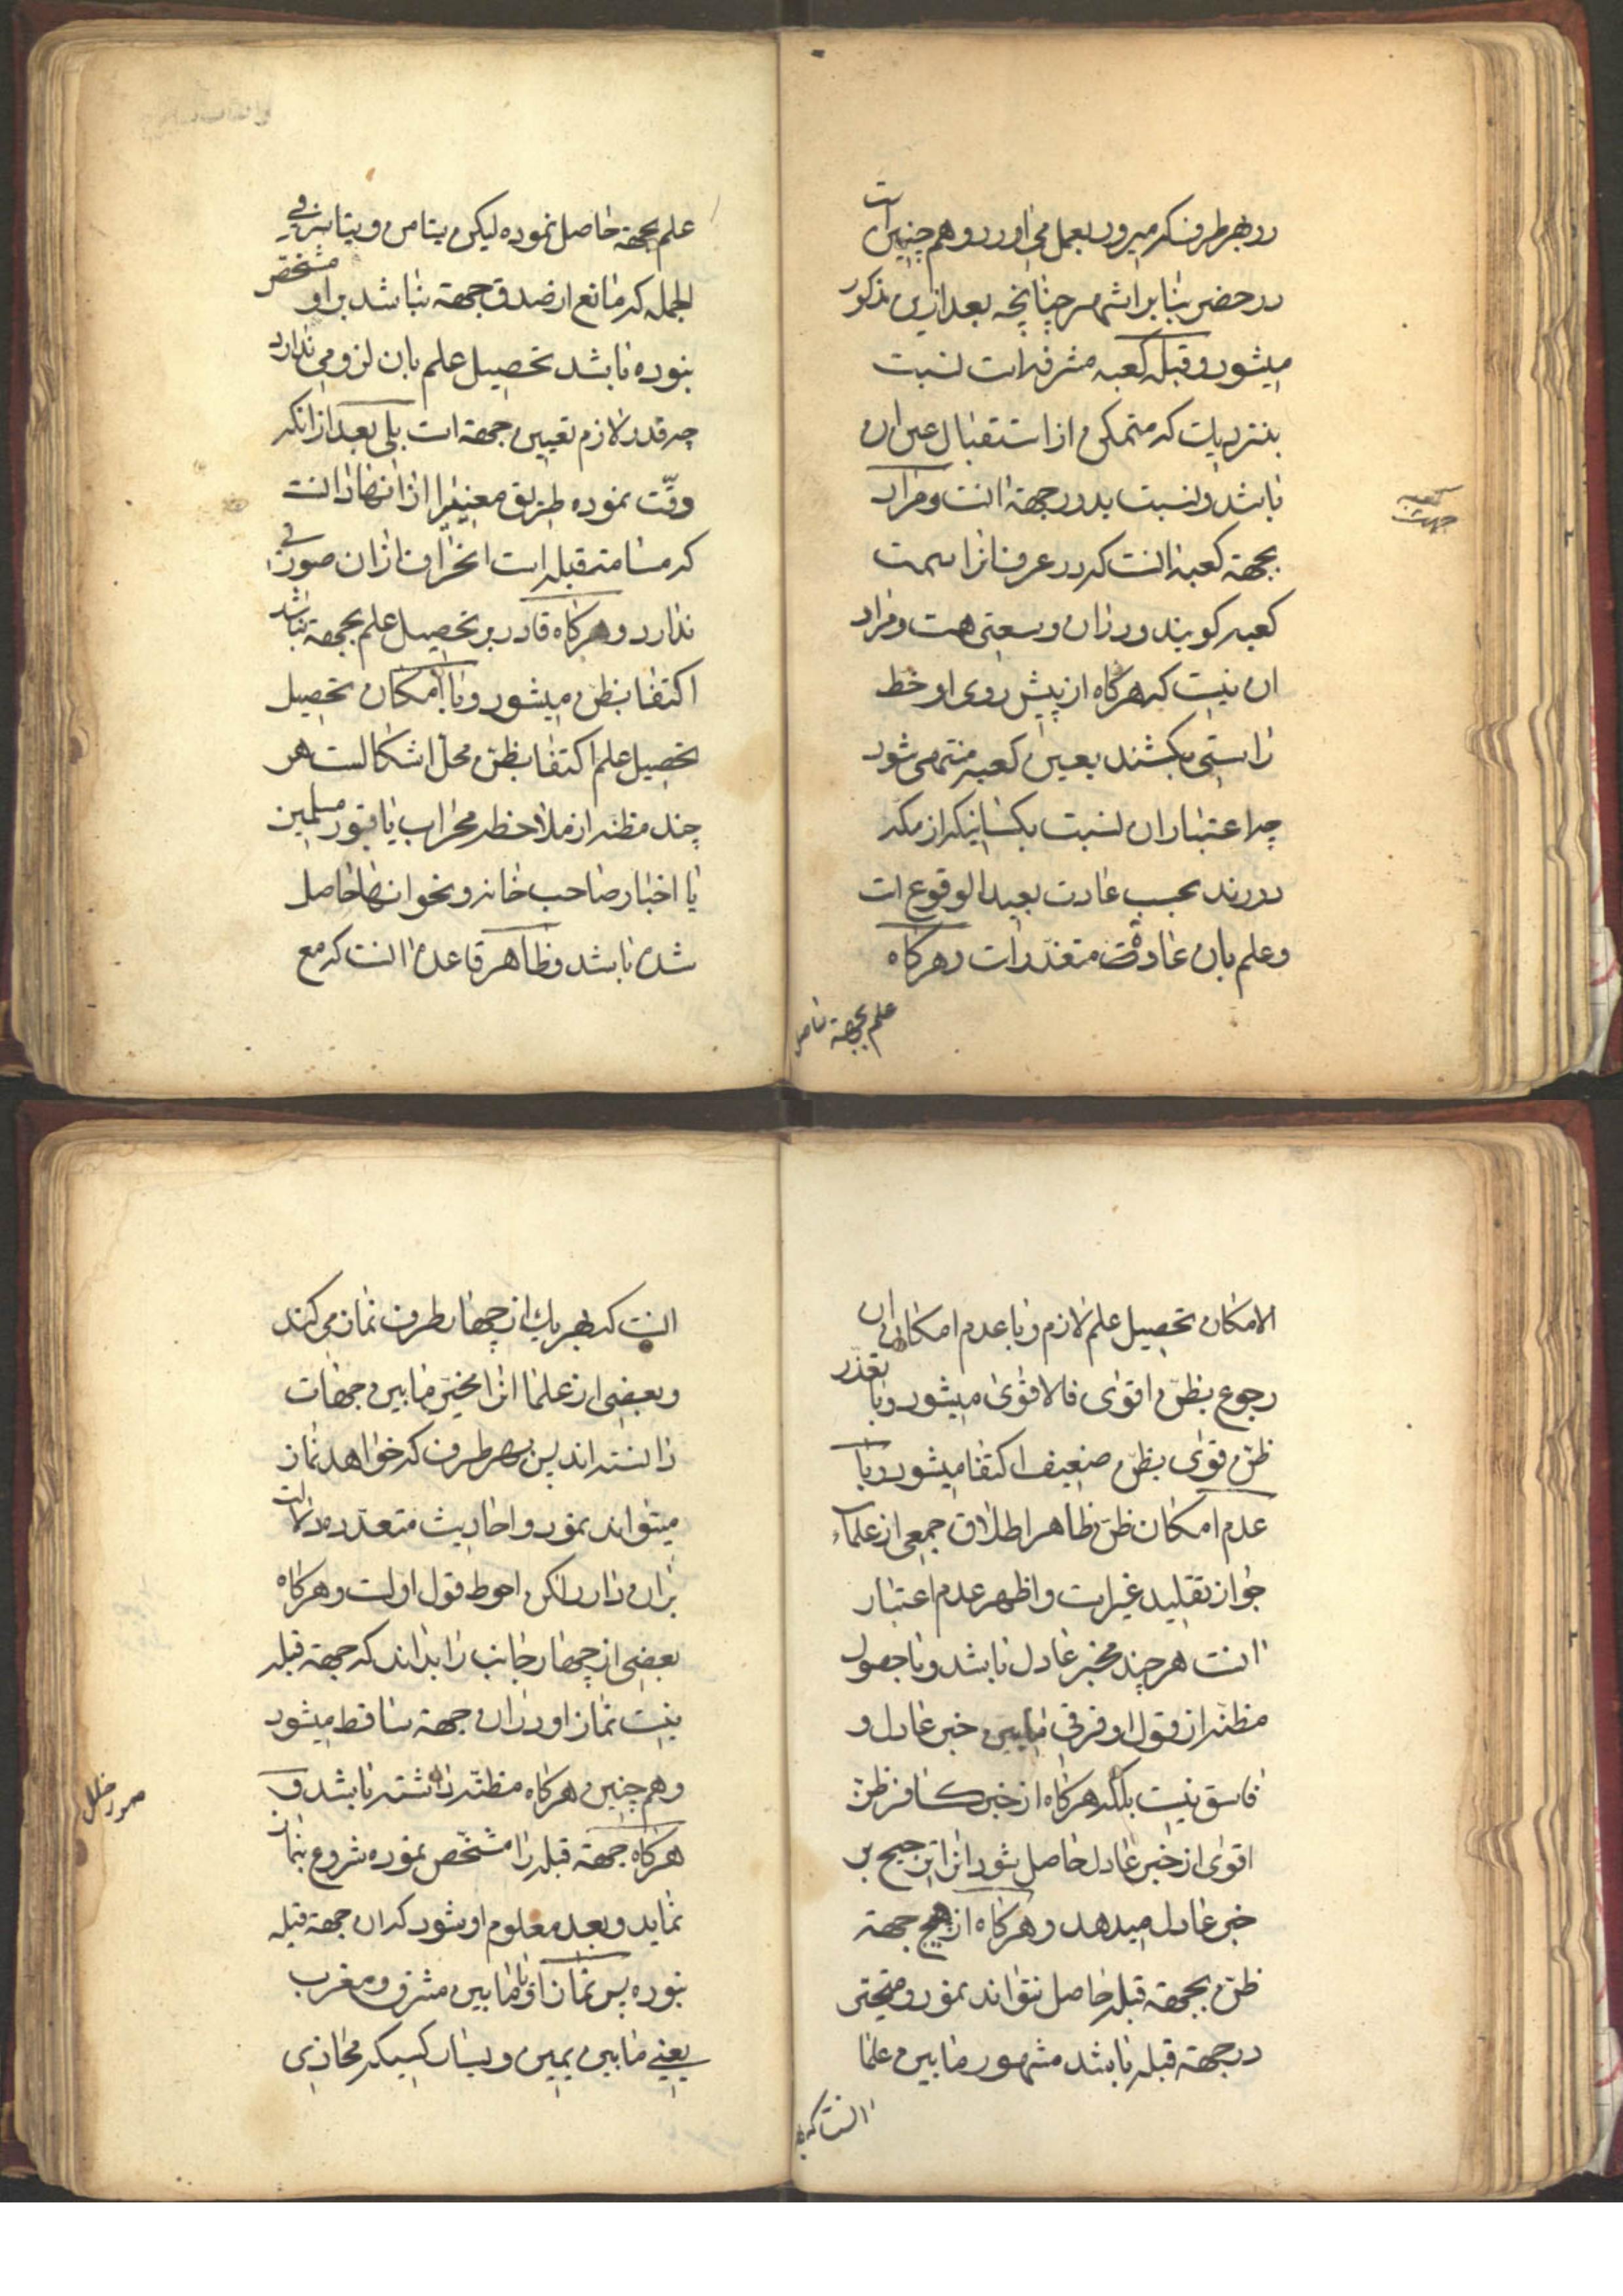 در بهر طرف که میرود بعمل می اورد و هم چنین است
در حضر بنا بر اشهر چنانچه بعد ازین مذکور
میشود و قبله کعبه مشرفه است نسبت
بنزدیک که متمکن از استقبال عین ان
باشد و نسبت بدور جهة انست و مراد
کعبه
جهت
بجهة کعبه انست که در عرف انرا سمت
کعبه کویند و دران وسعتی هست و مراد
ان نیست که هرکاه از پیش روی او خط
راستی بکشند بعین کعبه منتهی شود
چه اعتبار ان نسبت بکسانیکه از مکه
دورند بحسب عادت بعید الوقوع است
و علم بان عادة متعذر است و هرکاه
علم بجهة حاصل
علم بجهة حاصل نموده لیکن تیامن و تیاسر فی
الجمله که مانع از صدق جهة نباشد بر او مشخص
نبوده باشد تحصیل علم بان لزومی ندارد
چه قدر لازم تعیین جهة است بلی بعد از انکه
وقت نموده طریق معینی را از انها دانست
که مسامت قبله است انحراف ازان صورتی
ندارد و هرکاه قادر بر تحصیل علم بجهة نباشد
اکتفا بظن میشود و با امکان تحصیل
تحصیل علم اکتفا بظن محل اشکالست هر
چند مظنه از ملاحظه محراب یا قبور مسلمین
یا اخبار صاحب خانه و نحو انها حاصل
شده باشد و ظاهر قاعده انست که مع
الامکان تحصیل علم لازم و با عدم امکان ان
رجوع بظن اقوی فالاقوی میشود و با تعذر
ظن قوی بظن ضعیف اکتفا میشود و با
عدم امکان ظن ظاهر اطلاق جمعی از علماء
جواز تقلید غیر است و اظهر عدم اعتبار
انست هر چند مخبر عادل باشد و با حصول
مظنه از قول او فرقی مابین خبر عادل و
فاسق نیست بلکه هرکاه از خبر کافر ظن
اقوی از خبر عادل حاصل شود انرا ترجیح بر
خبر عادل میدهد و هرکاه از هیچ جهة
ظن بجهة قبله حاصل نتواند نمود و متحیر
در جهة قبله باشد مشهور مابین علما
انست که بهر
انست که بهر یك از چهار طرف نماز می کند
و بعضی از علما انرا مخیر مابین جهات
دانسته اند پس بهر طرف که خواهد نماز
میتواند نمود و احادیث متعدده دلالت
بران دارد لکن احوط قول اولست و هرکاه
بعضی از چهار جانب را بداند که جهة قبله
نیست نماز او دران جهة ساقط میشود
و هم چنین هرکاه مظنه داشته باشد و
صور خلل
هرکاه جهة قبله را مشخص نموده شروع بنماز
نماید و بعد معلوم او شود که ان جهة قبله
نبوده پس نماز او با مابین مشرق و مغرب
یعنی مابین یمین و یسار کسیکه محاذی